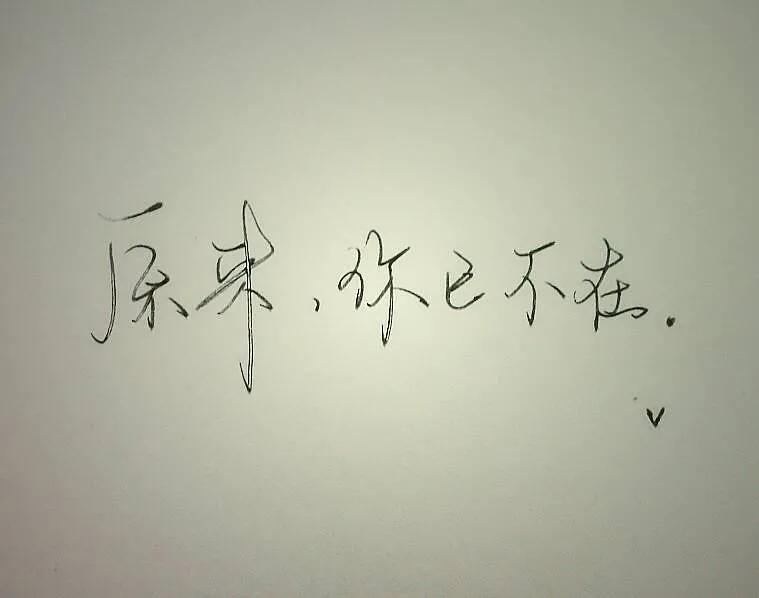 原来，你已不在.
v